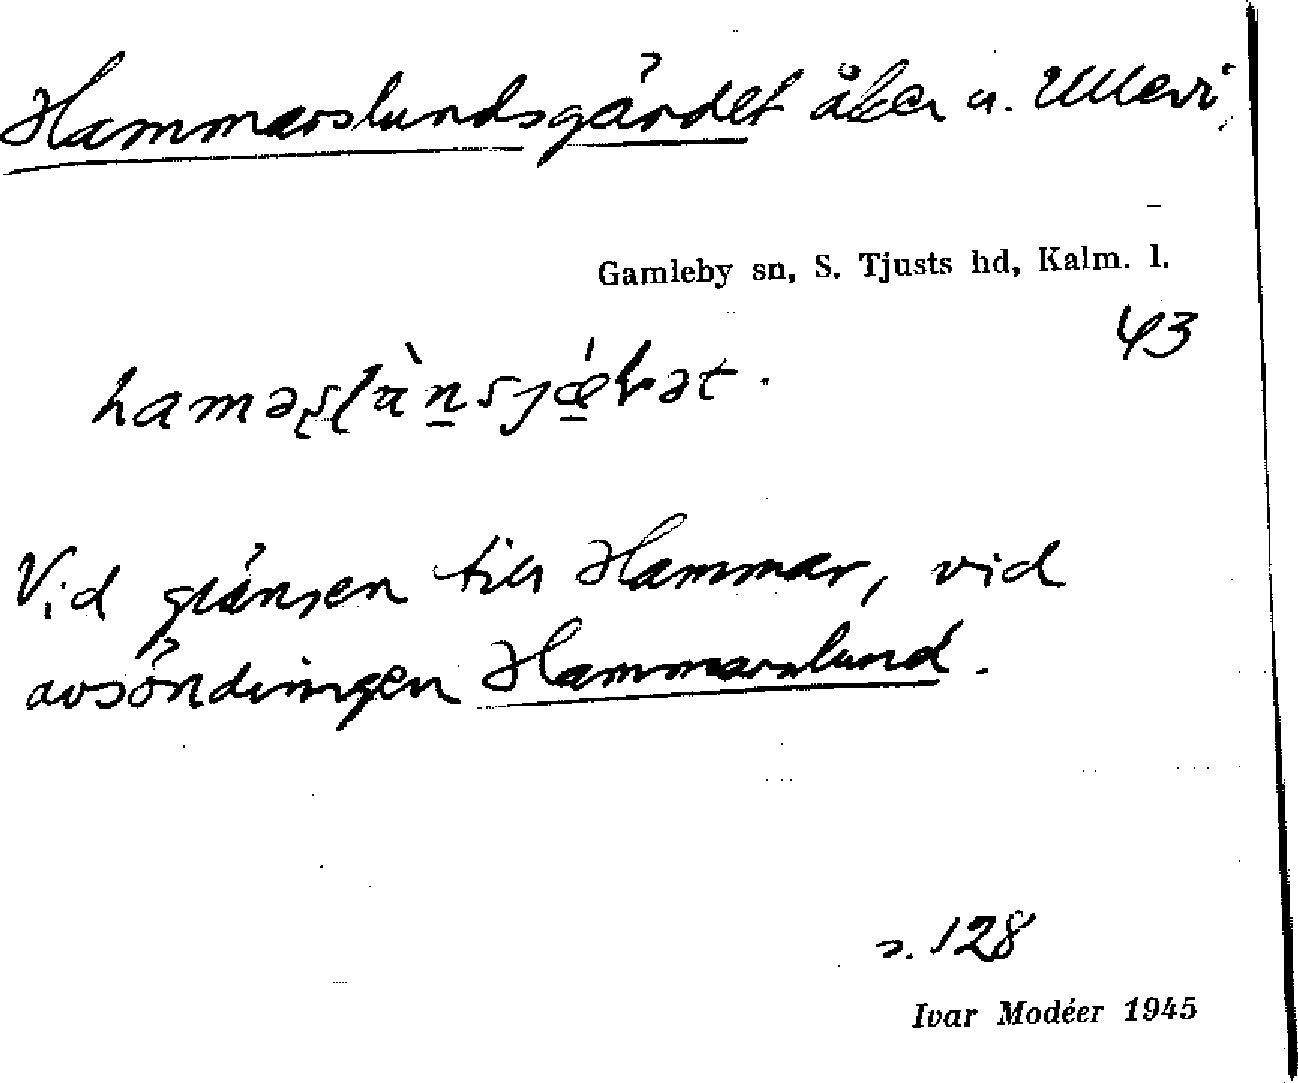 Hammarslundsgärdet åker u. Ullevi,
Gamleby sn, S. Tjusts hd, Kalm. l.
43
Vid gränsen till Hammar, vid
avsöndringen Hammarslund.
s. 128
Ivar Modéer 1945